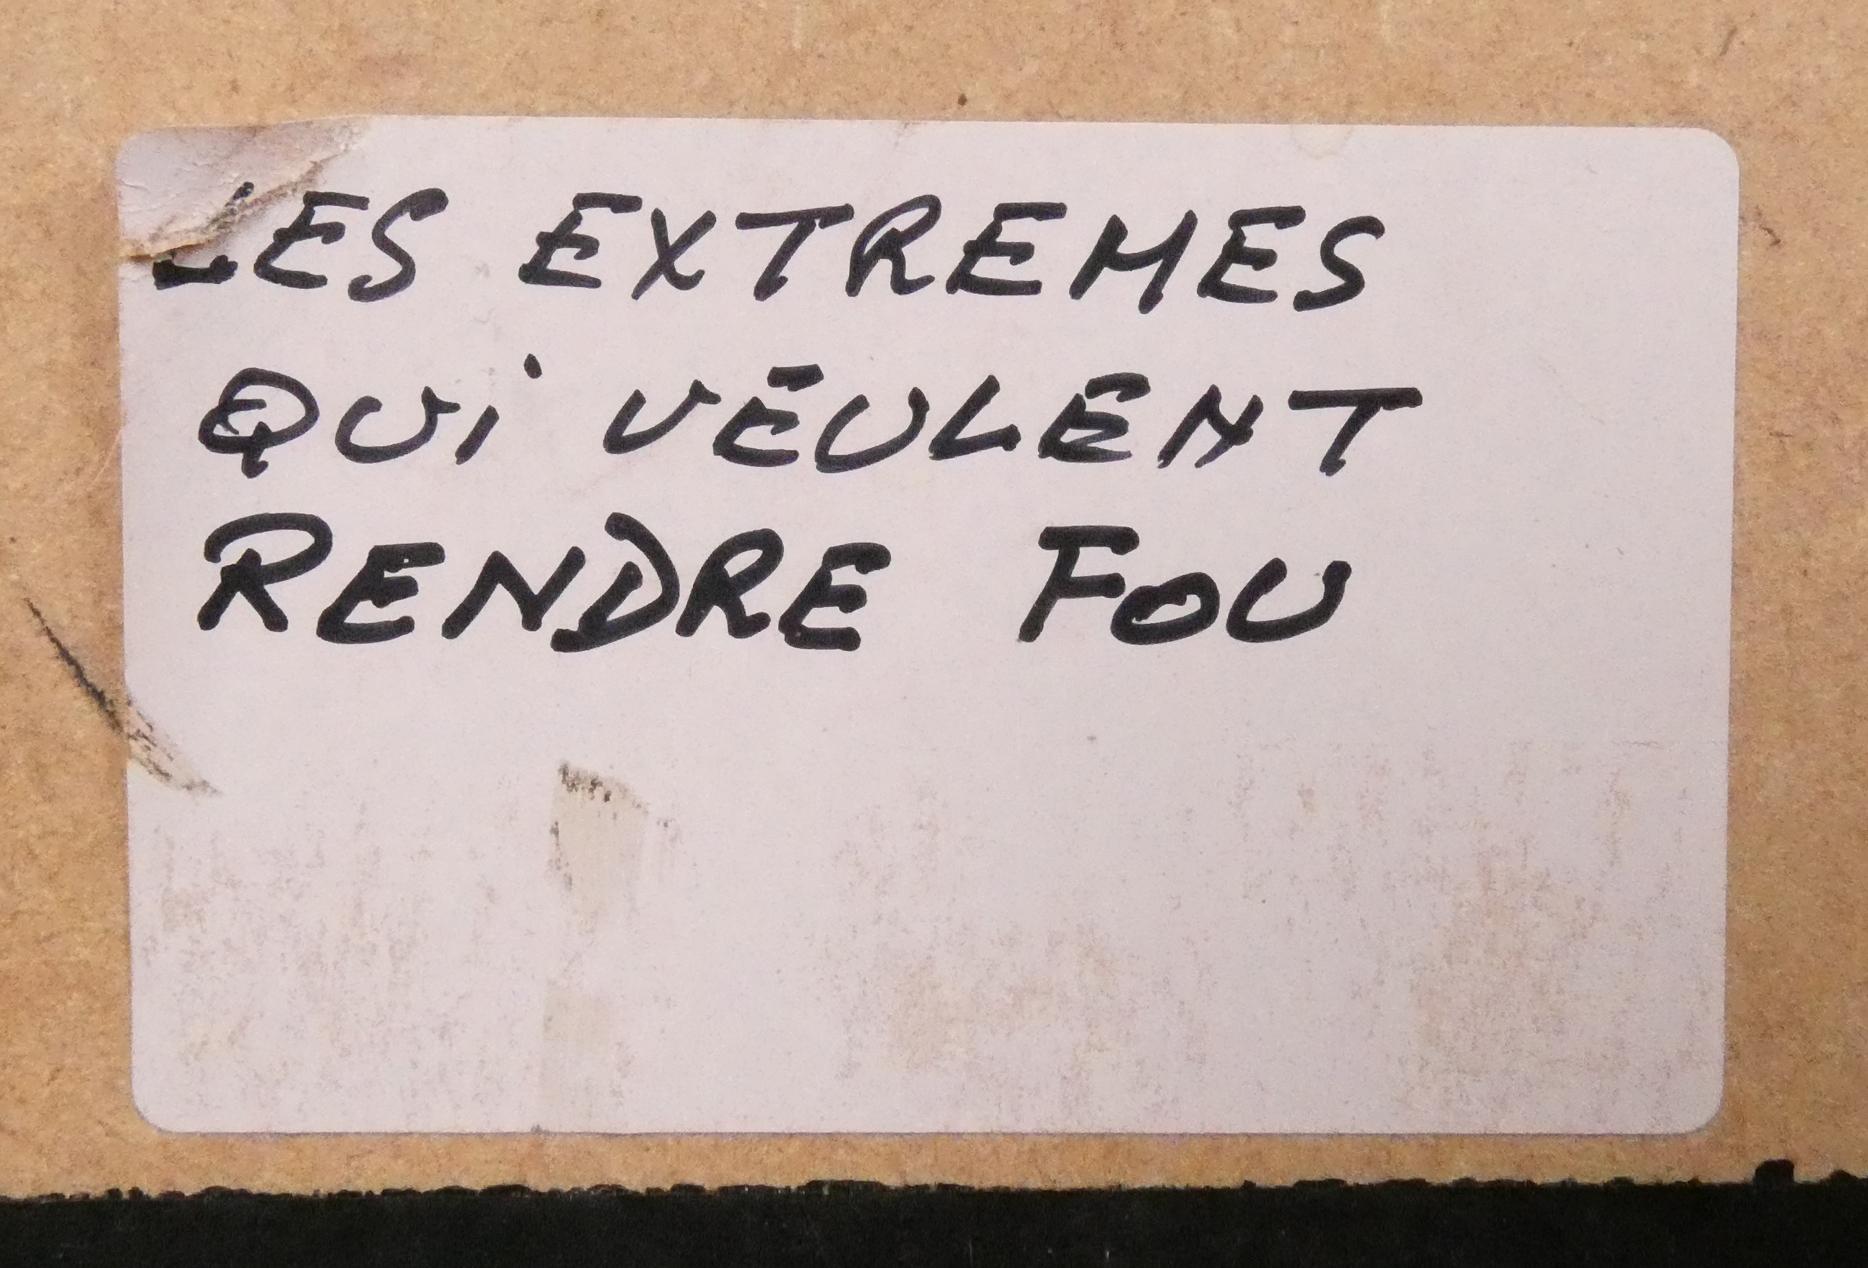 LES EXTREMES
QUi VEULENT
RENDRE FOU